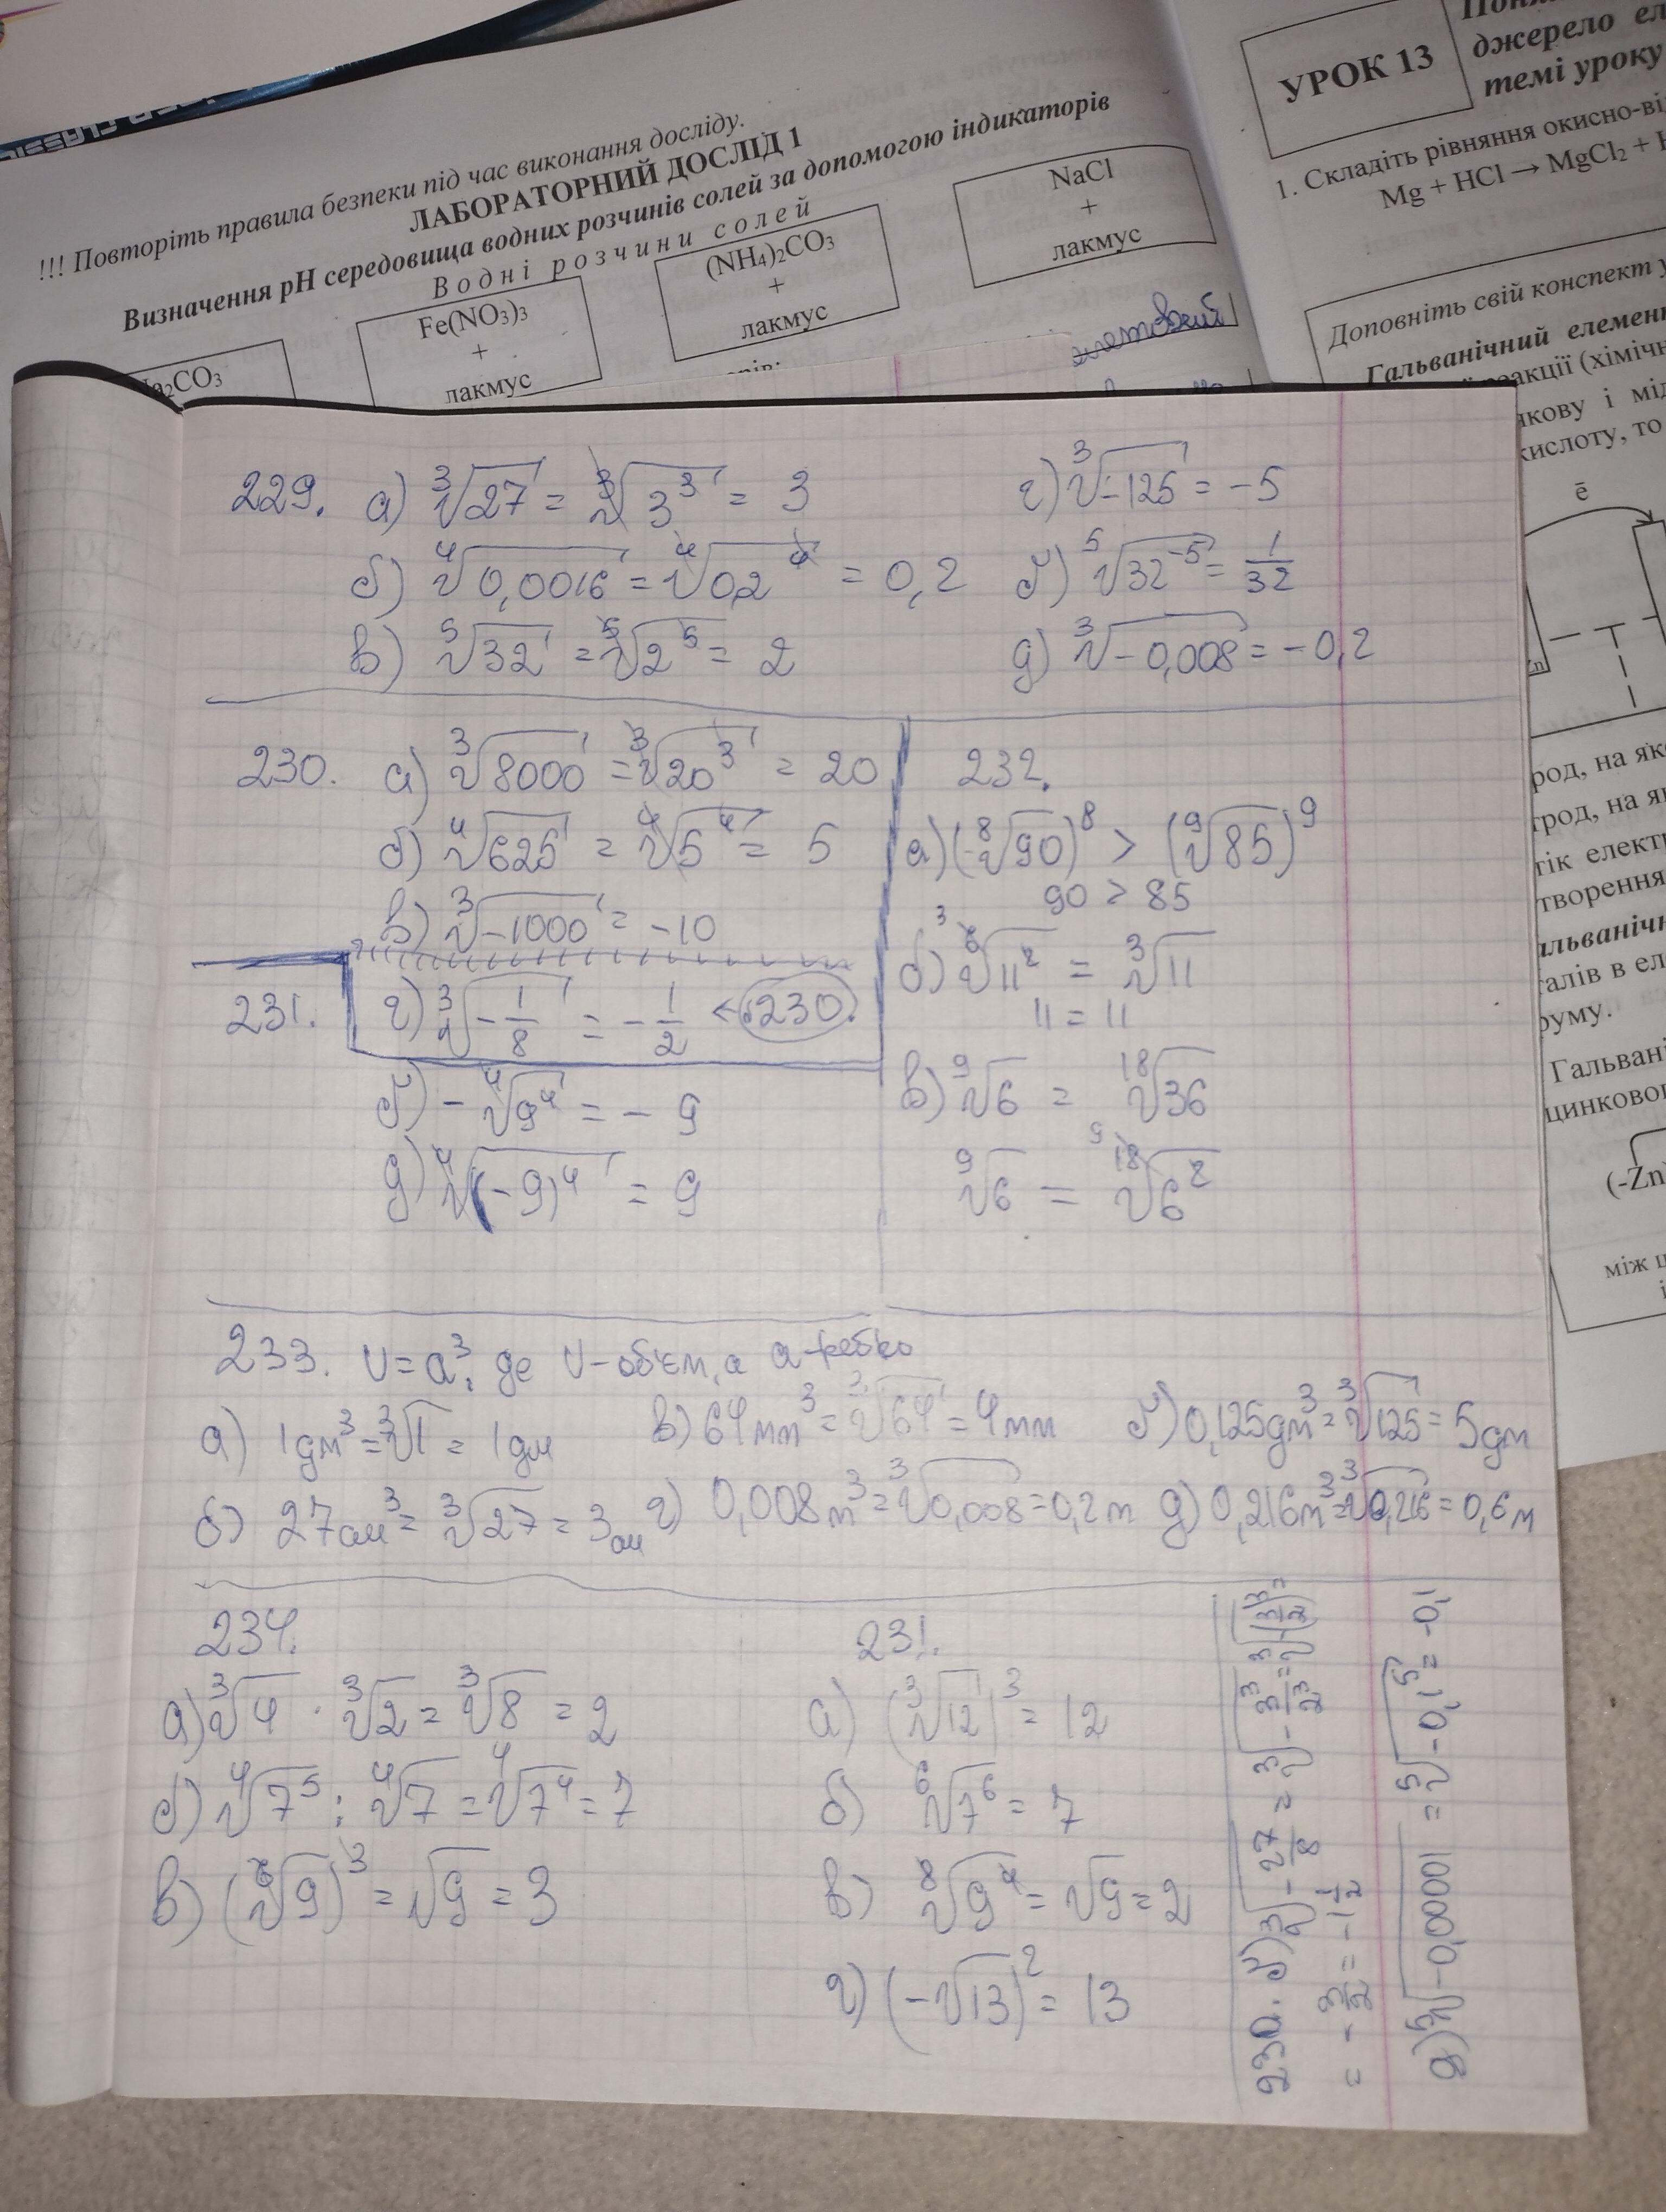 !!! Повторіть правила безпеки під час виконання досліду.
ЛАБОРАТОРНИЙ ДОСЛІД 1
Визначення рН середовища водних розчинів солей за допомогою індикаторів
Водні розчини солей
Na₂CO₃
Fe(NO₃)₃ + лакмус
(NH₄)₂CO₃ + лакмус
NaCl + лакмус
УРОК 13
джерело ел
темі уроку
1. Складіть рівняння окисно-ві
Mg + HCl → MgCl₂ + H
Доповніть свій конспект у
Гальванічний елемент
реакції (хімічн
нкову і мід
кислоту, то
ē
Zn
род, на яко
трод, на як
тік електр
творення
альваніч
талів в ел
руму.
Гальвані
цинковог
(-Zn
між ц
229. а) ∛27 = ∛3³ = 3 г) ∛-125 = -5
б) ⁴√0,0016 = ⁴√0,2⁴ = 0,2 ґ) ⁵√32⁻⁵ = 1/32
в) ⁵√32 = ⁵√2⁵ = 2 д) ∛-0,008 = -0,2
230. а) ∛8000 = ∛20³ = 20
б) ⁴√625 = ⁴√5⁴ = 5
в) ∛-1000 = -10
231. г) ∛-1/8 = -1/2 ← 230.
ґ) -⁴√9⁴ = -9
д) ⁴√(-9)⁴ = 9
232.
а) (⁸√90)⁸ > (⁹√85)⁹
90 > 85
б) ⁶√11² = ∛11
11 = 11
в) ⁹√6 = ¹⁸√36
⁹√6 = ¹⁸√6²
233. V = a³, де V-об'єм, а a-ребро
а) 1дм³ = ∛1 = 1дм в) 64мм³ = ∛64 = 4мм ґ) 0,125дм³ = ∛125 = 5дм
б) 27см³ = ∛27 = 3см г) 0,008м³ = ∛0,008 = 0,2м д) 0,216м³ = ∛0,216 = 0,6м
234.
а) ∛4 · ∛2 = ∛8 = 2
б) ⁴√7⁵ : ⁴√7 = ⁴√7⁴ = 7
в) (⁶√9)³ = √9 = 3
231.
а) (∛12)³ = 12
б) ⁶√7⁶ = 7
в) ⁸√9⁴ = √9 = 2
г) (-√13)² = 13
230. ґ) ∛-27/8 = ∛-3³/2³ = ∛-(3/2)³ =
= -3/2 = -1 1/2
д) ⁵√-0,00001 = ⁵√-0,1⁵ = -0,1